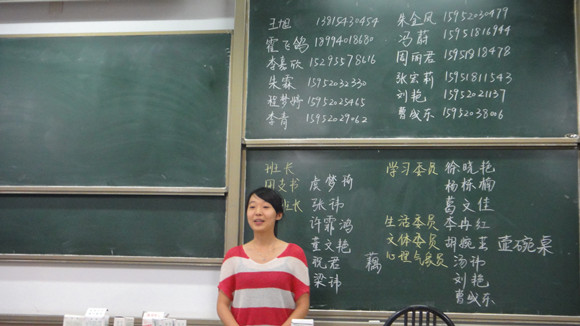 王旭 13815430454
霍飞鸽 18994018680
李嘉欣 15295578616
朱霖 15952032330
程梦婷 15952025465
李青 15952029062
朱金凤 15952030479
冯蔚 15951816944
周丽君 15951818478
张宏莉 15951811543
刘艳 15952021137
曹成东 15952038006
班长
团支书 虞梦
班长 张玮
许霏鸿
董文艳
祝君
梁玮
藕
学习委员 徐晓艳
杨栋楠
葛文佳
生活委员 李冉红
文体委员 胡婉 壶碗桌
心理气象员 汤玮
刘艳
曹成东